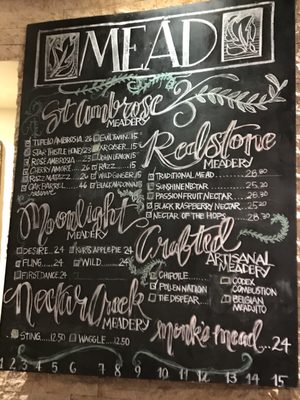 MEAD
St Ambrose
MEADERY
TUPELO AMBROSIA . 26
STAR THISTLE HONEY 23
ROSÉ AMBROSIA . 23
CHERRY AMORE . 24
RAZZ MATAZZ . 24
OAK BARREL . 46
RESERVE
JOHN LEMON . 15
RAZZ . 15
WILD GINGER . 15
BLACK MADONNA . 15
Redstone
MEADERY
TRADITIONAL MEAD 26.80
SUNSHINE NECTAR 25.20
PASSIONFRUIT NECTAR 28.80
BLACK RASPBERRY NECTAR 25.20
NECTAR OF THE HOPS 28.30
Moonlight
MEADERY
DESIRE . 24
FLING . 24
FIRST DANCE . 24
KURT'S APPLE PIE . 24
WILD . 24
Crafted
ARTISANAL
MEADERY
CHIPOTLE
POLLEN NATION
THE DISPEAR
CODEX
COMBUSTION
BELGIAN
Nectar Creek
MEADERY
STING 12.50
WAGGLE 12.50
Monks Mead 24
1 2 3 4 5 6 7 8 9 10 11 12 13 14 15